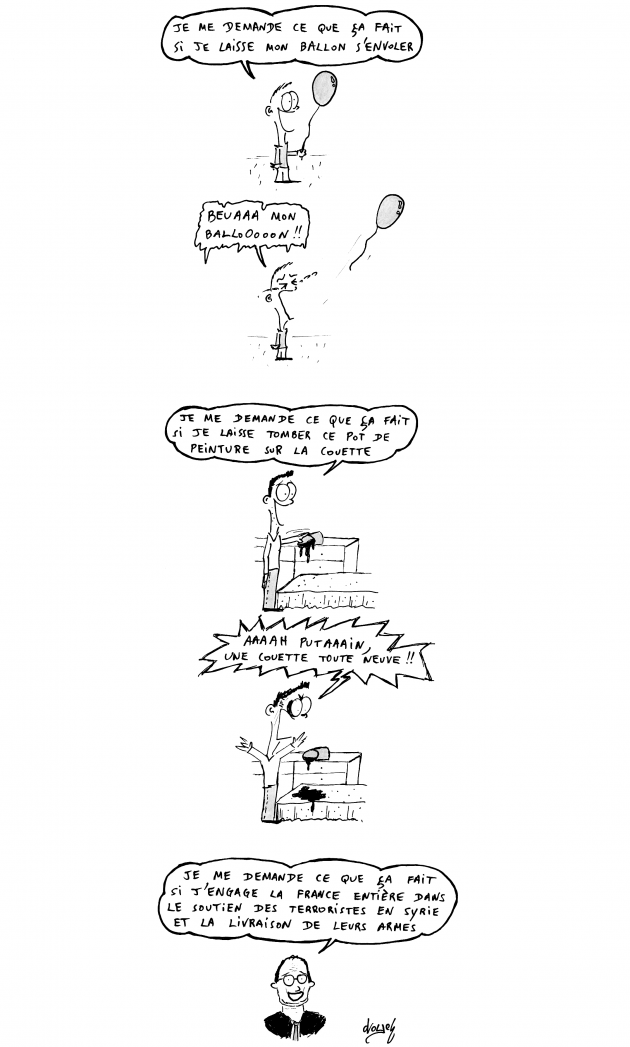 JE ME DEMANDE CE QUE ÇA FAIT
SI JE LAISSE MON BALLON S'ENVOLER
BEUAAA MON
BALLOOOOON !!
JE ME DEMANDE CE QUE ÇA FAIT
SI JE LAISSE TOMBER CE POT DE
PEINTURE SUR LA COUETTE
AAAAH PUTAAAIN,
UNE COUETTE TOUTE NEUVE !!
JE ME DEMANDE CE QUE ÇA FAIT
SI J'ENGAGE LA FRANCE ENTIÈRE DANS
LE SOUTIEN DES TERRORISTES EN SYRIE
ET LA LIVRAISON DE LEURS ARMES